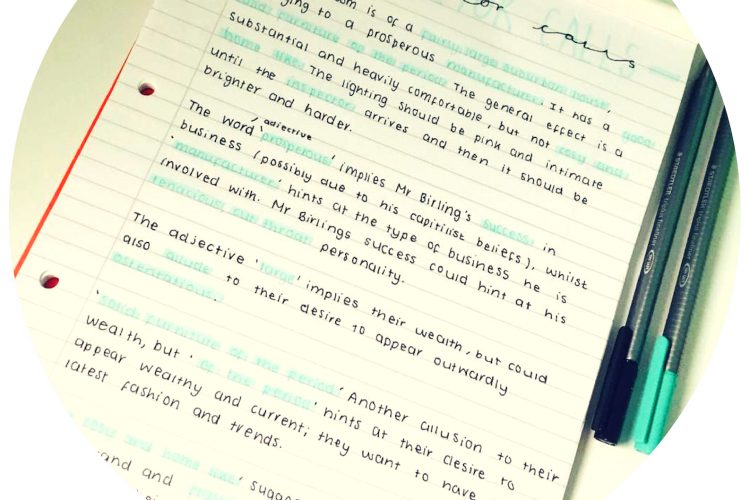 or calls
room is of a fairly large suburban house,
belonging to a prosperous manufacturer. It has a good
solid furniture of the period. The general effect is a
substantial and heavily comfortable, but not cosy and
home like. The lighting should be pink and intimate
until the inspector arrives and then it should be
brighter and harder.
adjective
The word 'prosperous' implies Mr Birling's success in
business (possibly due to his capitilist beliefs), whilst
'manufacturer' hints at the type of business he is
involved with. Mr Birlings success could hint at his
tenacious, cut throat personality.
The adjective 'large' implies their wealth, but could
also allude to their desire to appear outwardly
ostentatious.
'solid furniture of the period' Another allusion to their
wealth, but 'of the period' hints at their desire to
appear wealthy and current; they want to have
latest fashion and trends.
cosy and home like' sugges
and and
STAEDTLER
STAEDTLER